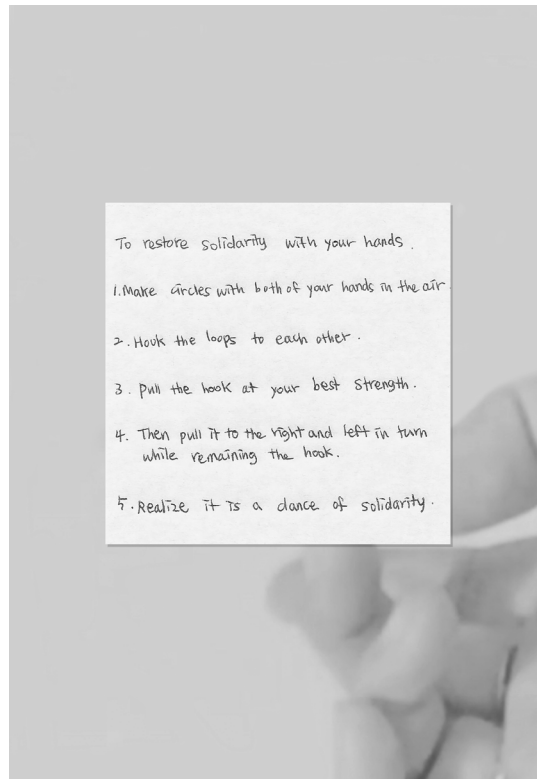 To restore solidarity with your hands.
1. Make circles with both of your hands in the air.
2. Hook the loops to each other.
3. Pull the hook at your best strength.
4. Then pull it to the right and left in turn
while remaining the hook.
5. Realize it is a dance of solidarity.